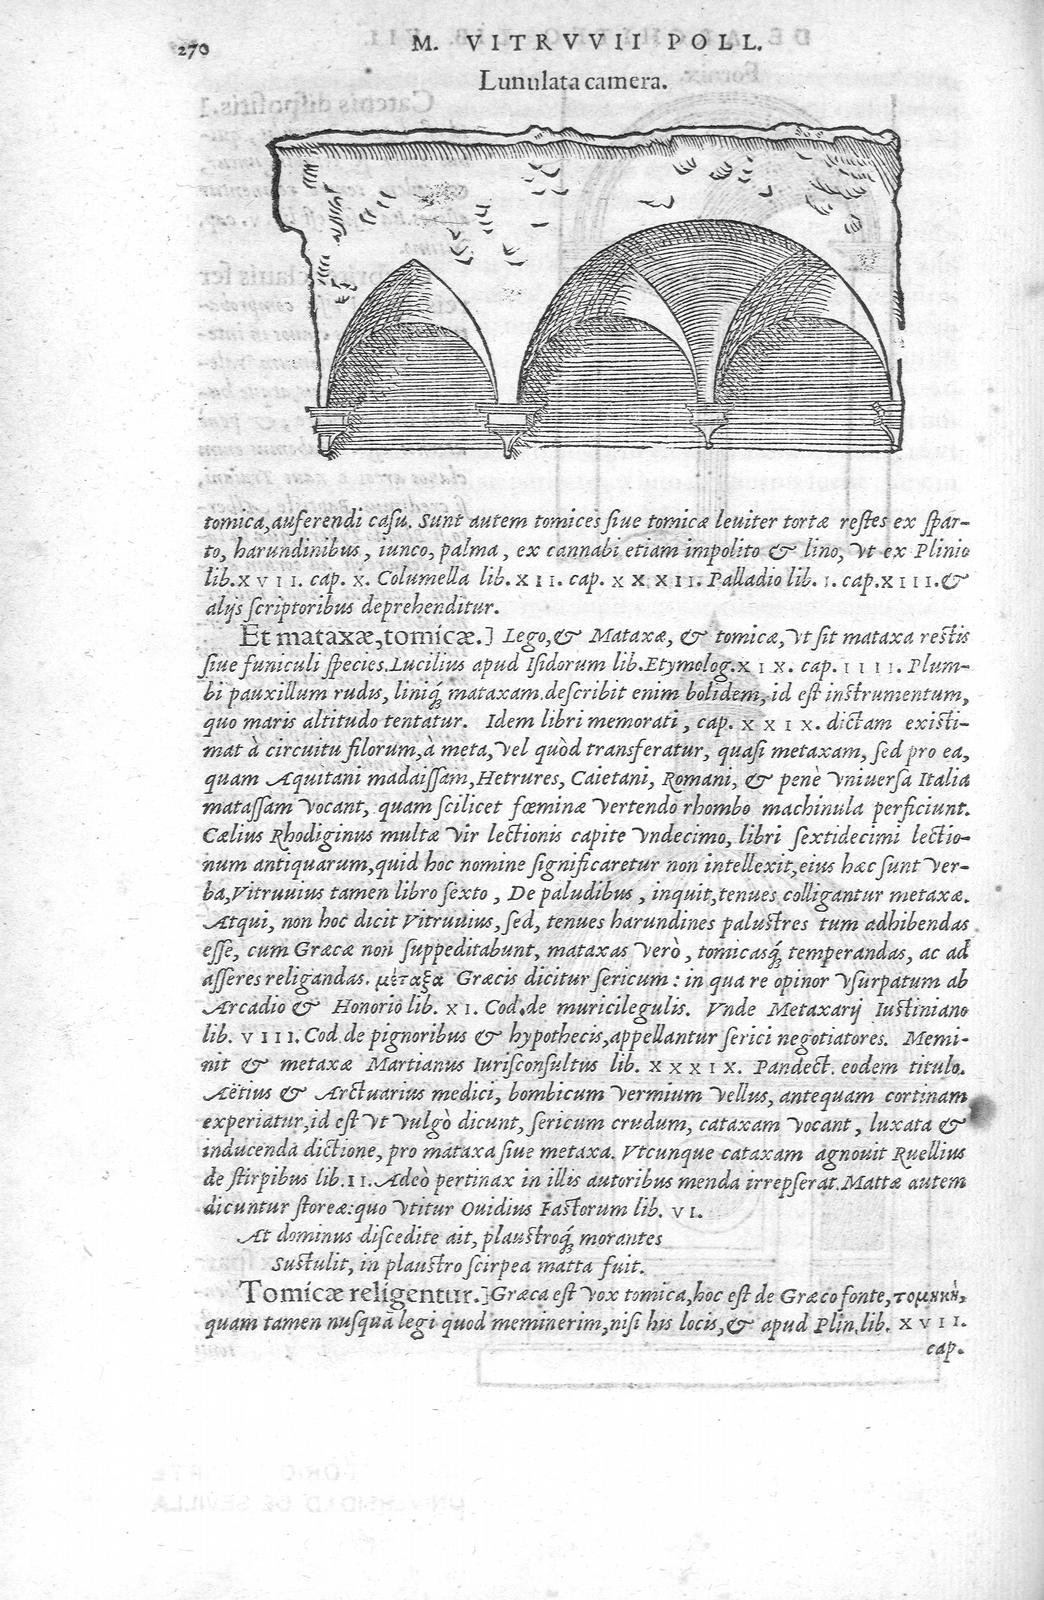 270
M. VITRVVII POLL.
Lunulata camera.
tomica, auferendi casu. Sunt autem tomices siue tomicæ leuiter tortæ restes ex spar-
to, harundinibus, iunco, palma, ex cannabi etiam impolito & lino, vt ex Plinio
lib. XVII. cap. X. Columella lib. XII. cap. XXXII. Palladio lib. I. cap. XIII. &
alijs scriptoribus deprehenditur.
Et mataxæ, tomicæ.] Lego, & Mataxæ, & tomicæ, vt sit mataxa restis
siue funiculi species. Lucilius apud Isidorum lib. Etymolog. XIX. cap. IIII. Plum-
bi pauxillum rudis, liniq́; mataxam. describit enim bolidem, id est instrumentum,
quo maris altitudo tentatur. Idem libri memorati, cap. XXIX. dictam existi-
mat à circuitu filorum, à meta, vel quòd transferatur, quasi metaxam, sed pro ea,
quam Aquitani madaissam, Hetrures, Caietani, Romani, & penè vniuersa Italia
matassam vocant, quam scilicet fœminæ vertendo rhombo machinula perficiunt.
Cælius Rhodiginus multæ vir lectionis capite vndecimo, libri sextidecimi lectio-
num antiquarum, quid hoc nomine significaretur non intellexit, eius hæc sunt ver-
ba, Vitruuius tamen libro sexto, De paludibus, inquit, tenues colligantur metaxæ.
Atqui, non hoc dicit Vitruuius, sed, tenues harundines palustres tum adhibendas
esse, cum Græcæ non suppeditabunt, mataxas verò, tomicasq́; temperandas, ac ad
asseres religandas. μέταξα Græcis dicitur sericum: in qua re opinor vsurpatum ab
Arcadio & Honorio lib. XI. Cod. de muricilegulis. Vnde Metaxarij Iustiniano
lib. VIII. Cod. de pignoribus & hypothecis, appellantur serici negotiatores. Memi-
nit & metaxæ Martianus Iurisconsultus lib. XXXIX. Pandect. eodem titulo.
Aëtius & Arctuarius medici, bombicum vermium vellus, antequam cortinam
experiatur, id est vt vulgò dicunt, sericum crudum, cataxam vocant, luxata &
inducenda dictione, pro mataxa siue metaxa. Vtcunque cataxam agnouit Ruellius
de stirpibus lib. II. Adeò pertinax in illis autoribus menda irrepserat. Mattæ autem
dicuntur storeæ: quo vtitur Ouidius Fastorum lib. VI.
At dominus discedite ait, plaustroq́; morantes
Sustulit, in plaustro scirpea matta fuit.
Tomicæ religentur.] Græca est vox tomica, hoc est de Græco fonte, τομικὴ,
quam tamen nusquā legi quod meminerim, nisi his locis, & apud Plin. lib. XVII.
cap.